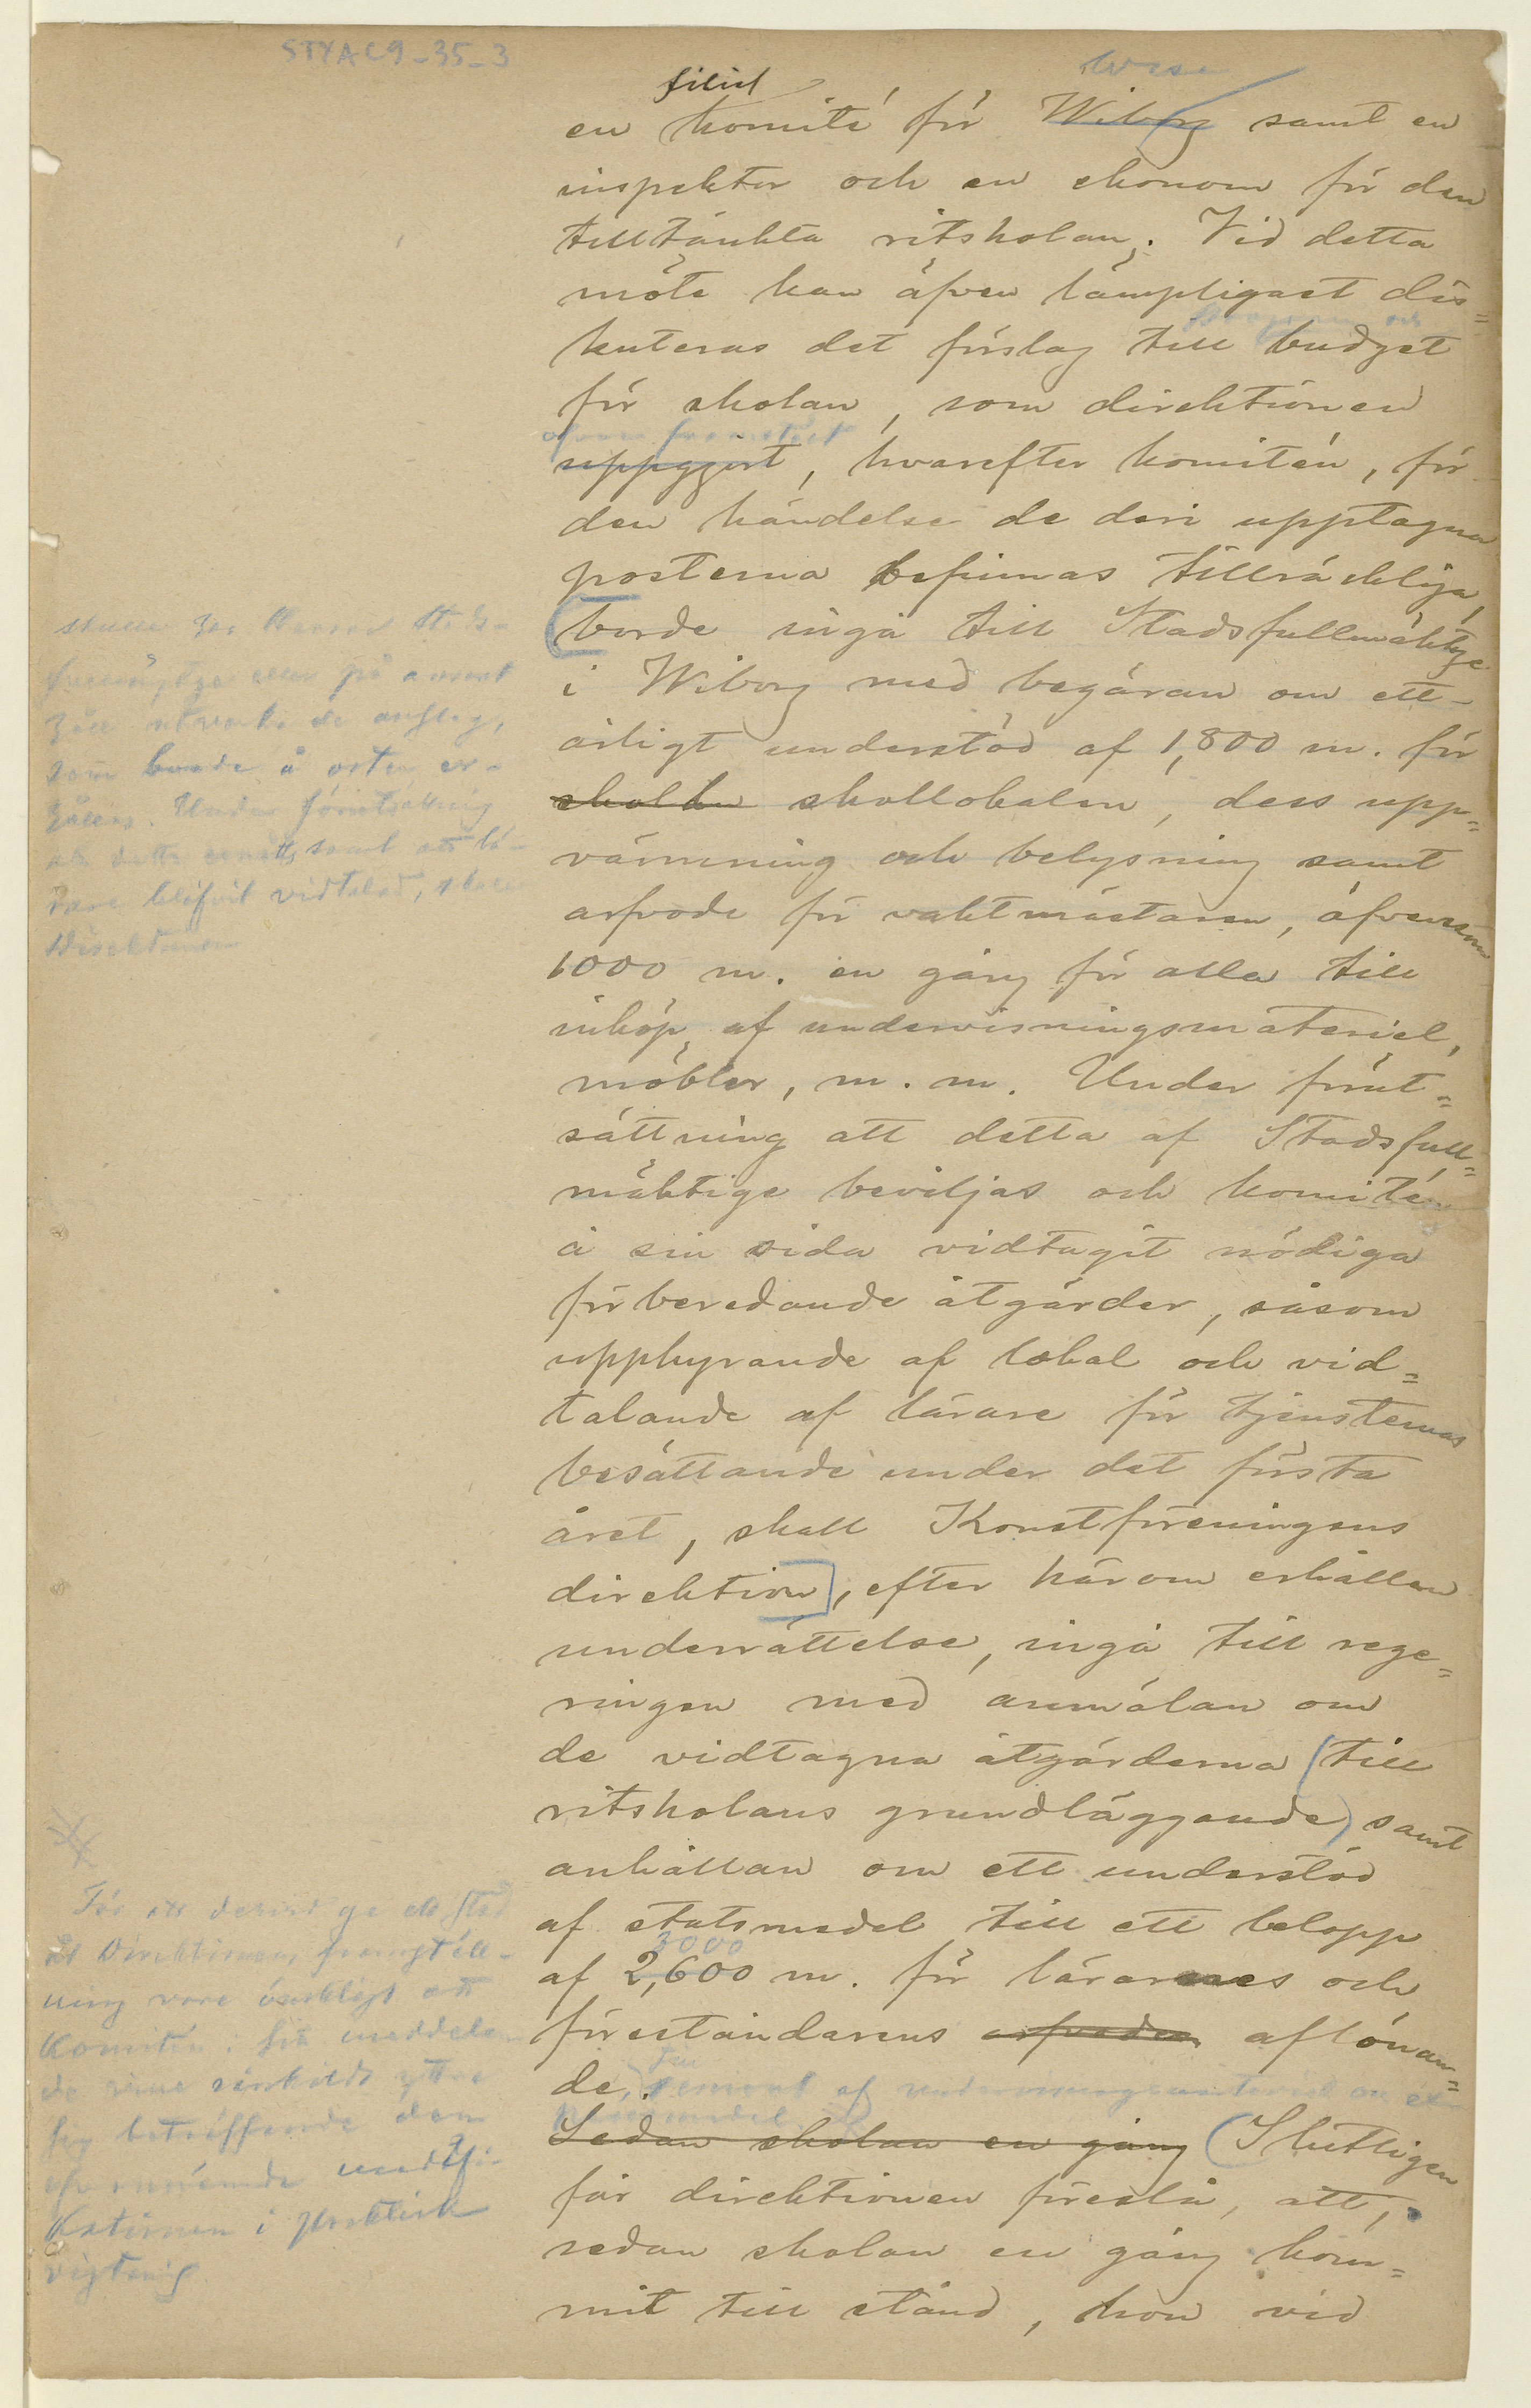 STYA C9-35-3
filial
en komité för Wiborg samt en
inspektor och en ekonom för den
tilltänkta ritskolan. Vid detta
möte kan äfven lämpligast dis=
kuteras det förslag till budget
för skolan, som direktionen
ofvan framstält
uppgjort, hvarefter komitén, för
den händelse de deri upptagna
posterna befinnas tillräckliga,
borde ingå till Stadsfullmäktige
i Wiborg med begäran om ett
årligt understöd af 1,800 m. för
skolan skollokalen, dess upp=
värmning och belysning samt
arfvode för vaktmästaren, äfvensom
1000 m. en gång för alla till
inköp af undervisningsmateriel,
möbler, m. m. Under förut=
sättning att detta af Stadsfull=
mäktige beviljas och komitén
å sin sida vidtagit nödiga
förberedande åtgärder, såsom
upphyrande af lokal och vid=
talande af lärare för tjensternas
besättande under det första
året, skall Konstföreningens
direktion, efter härom erhållen
underrättelse, ingå till rege=
ringen med anmälan om
de vidtagna åtgärderna (till
ritskolans grundläggande) samt
anhållan om ett understöd
af statsmedel till ett belopp
3000
af 2,600 m. för lärarnes och
föreståndarens arfvoden aflönan=
de,
af undervisningsmateriel
Sedan skolan en gång (Slutligen
får direktionen föreslå, att,
sedan skolan en gång kom=
mit till stånd, hon vid
skulle hos Stads-
fullmägtige eller på annat
sätt utverka de anslag,
som borde å orten er-
hållas. Under förutsättning
att detta samt att lä-
rare blifvit vidtalad, skall
Direktionen
För att dervid ge
åt Direktionens framställ-
ning vore önskligt att
Komitén i sitt meddelan-
de ville särskildt yttra
sig beträffande den
ofvannämnda
i praktisk